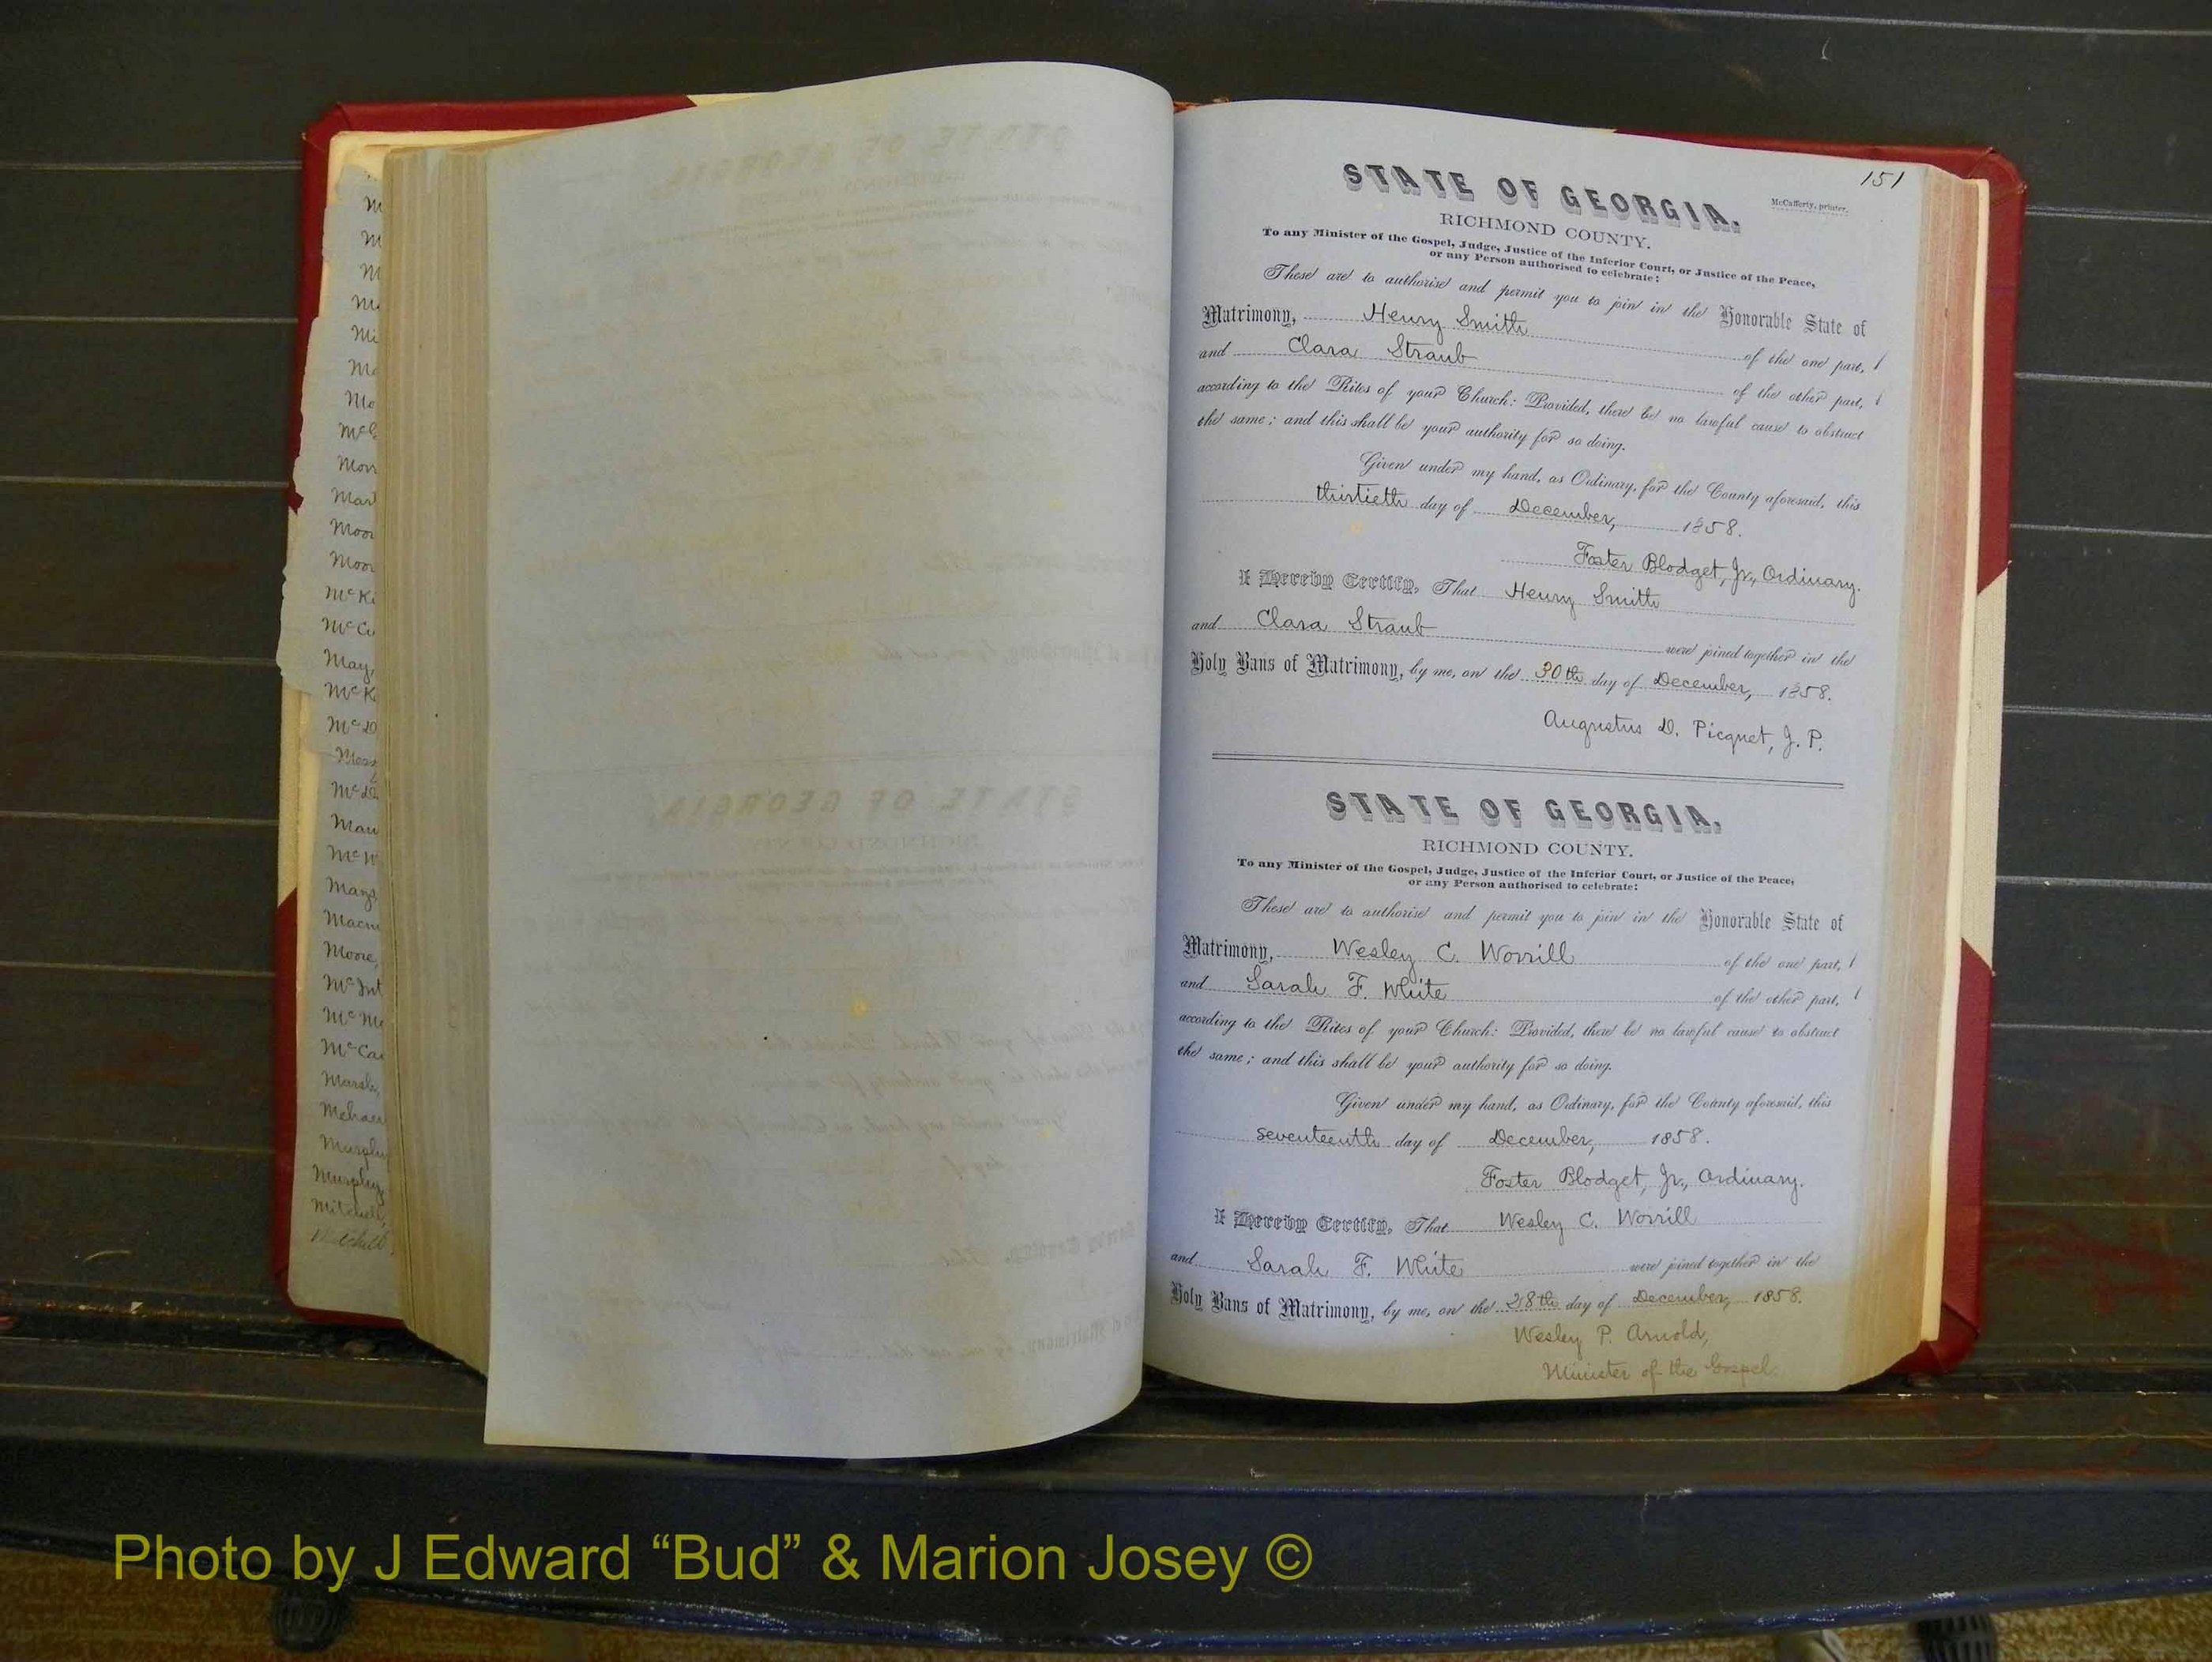 M
M
M
Mc
Mi
Mc
Mo
McC
Morr
Mart
Moor
Moor
McKi
McCu
May,
McK
McD
Mess
Mau
McW
Mays,
Macm
Moore,
McInt
McMc
McCa
Murphy
Murphy,
Mitchell,
Mitchell
151
STATE OF GEORGIA.
McCafferty, printer.
RICHMOND COUNTY.
To any Minister of the Gospel, Judge, Justice of the Inferior Court, or Justice of the Peace,
or any Person authorised to celebrate:
These are to authorise and permit you to join in the Honorable State of
Matrimony, Henry Smith of the one part,
and Clara Straub of the other part,
according to the Rites of your Church: Provided, there be no lawful cause to obstruct
the same; and this shall be your authority for so doing.
Given under my hand, as Ordinary, for the County aforesaid, this
thirtieth day of December, 1858.
Foster Blodget, Jr., Ordinary.
I Hereby Certify, That Henry Smith
and Clara Straub were joined together in the
Holy Bans of Matrimony, by me, on the 30th day of December, 1858.
Augustus D. Picquet, J. P.
STATE OF GEORGIA.
RICHMOND COUNTY.
To any Minister of the Gospel, Judge, Justice of the Inferior Court, or Justice of the Peace,
or any Person authorised to celebrate:
These are to authorise and permit you to join in the Honorable State of
Matrimony, Wesley C. Worrill of the one part,
and Sarah F. White of the other part,
according to the Rites of your Church: Provided, there be no lawful cause to obstruct
the same; and this shall be your authority for so doing.
Given under my hand, as Ordinary, for the County aforesaid, this
seventeenth day of December, 1858.
Foster Blodget, Jr., Ordinary.
I Hereby Certify, That Wesley C. Worrill
and Sarah F. White were joined together in the
Holy Bans of Matrimony, by me, on the 28th day of December, 1858.
Wesley P. Arnold,
Minister of the Gospel
Photo by J Edward “Bud” & Marion Josey ©